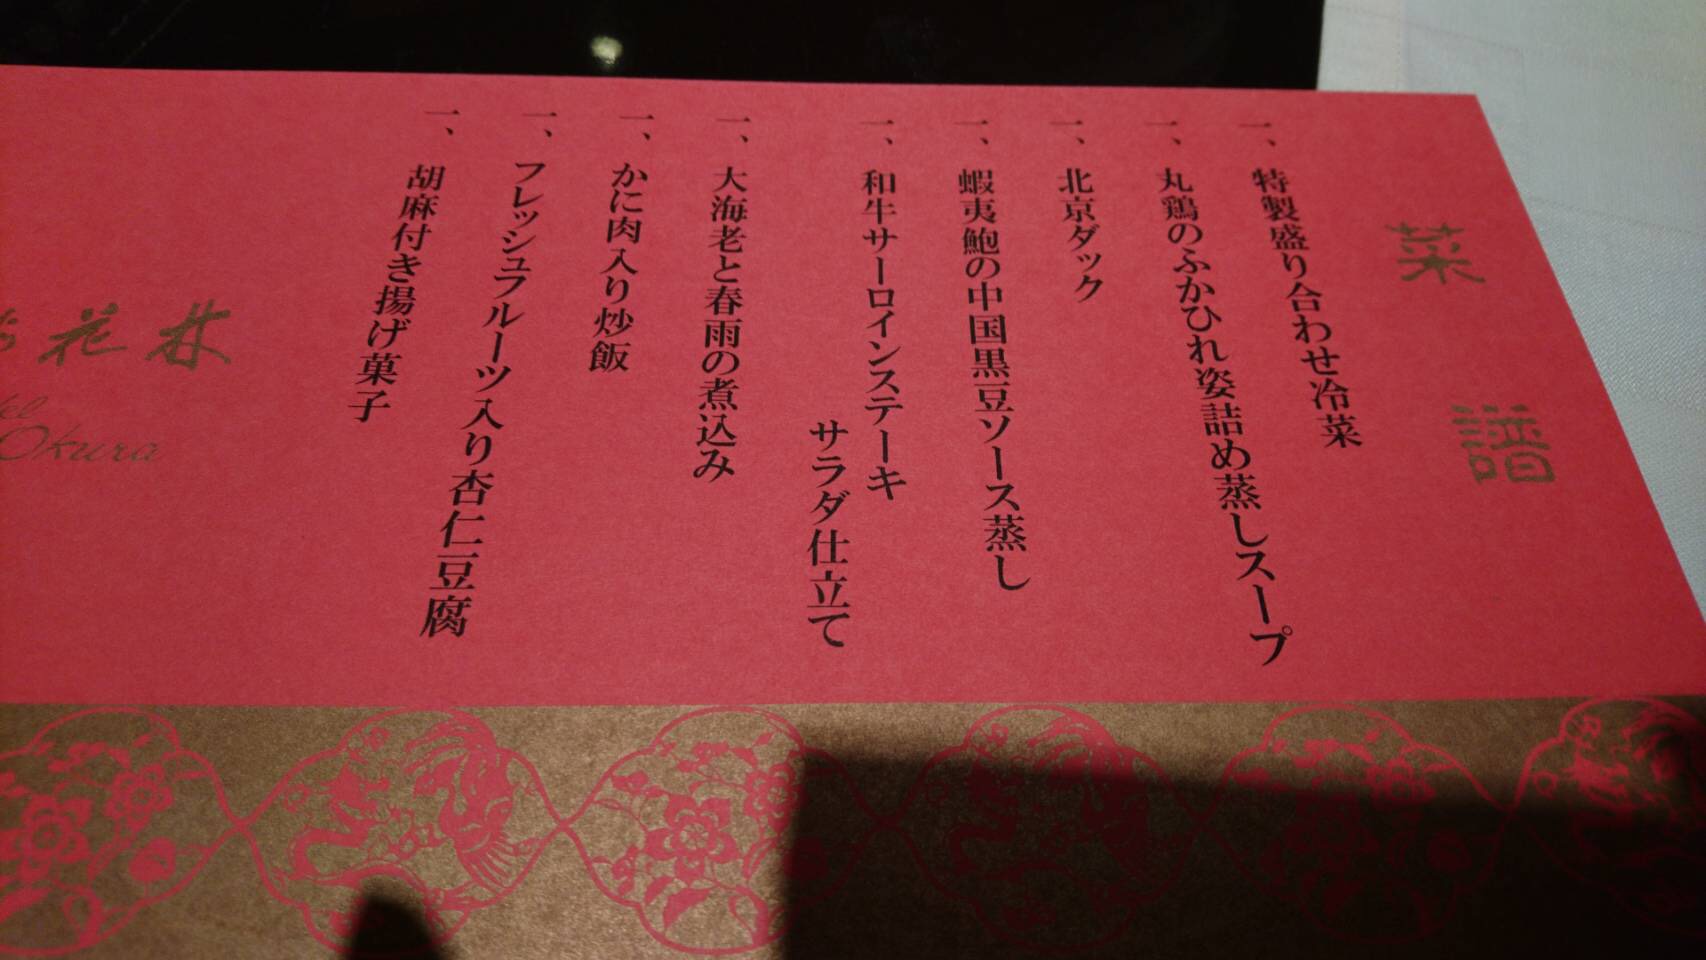 菜譜
一、特製盛り合わせ冷菜
一、丸鶏のふかひれ姿詰め蒸しスープ
一、北京ダック
一、蝦夷鮑の中国黒豆ソース蒸し
一、和牛サーロインステーキ
サラダ仕立て
一、大海老と春雨の煮込み
一、かに肉入り炒飯
一、フレッシュフルーツ入り杏仁豆腐
一、胡麻付き揚げ菓子
花林
Okura